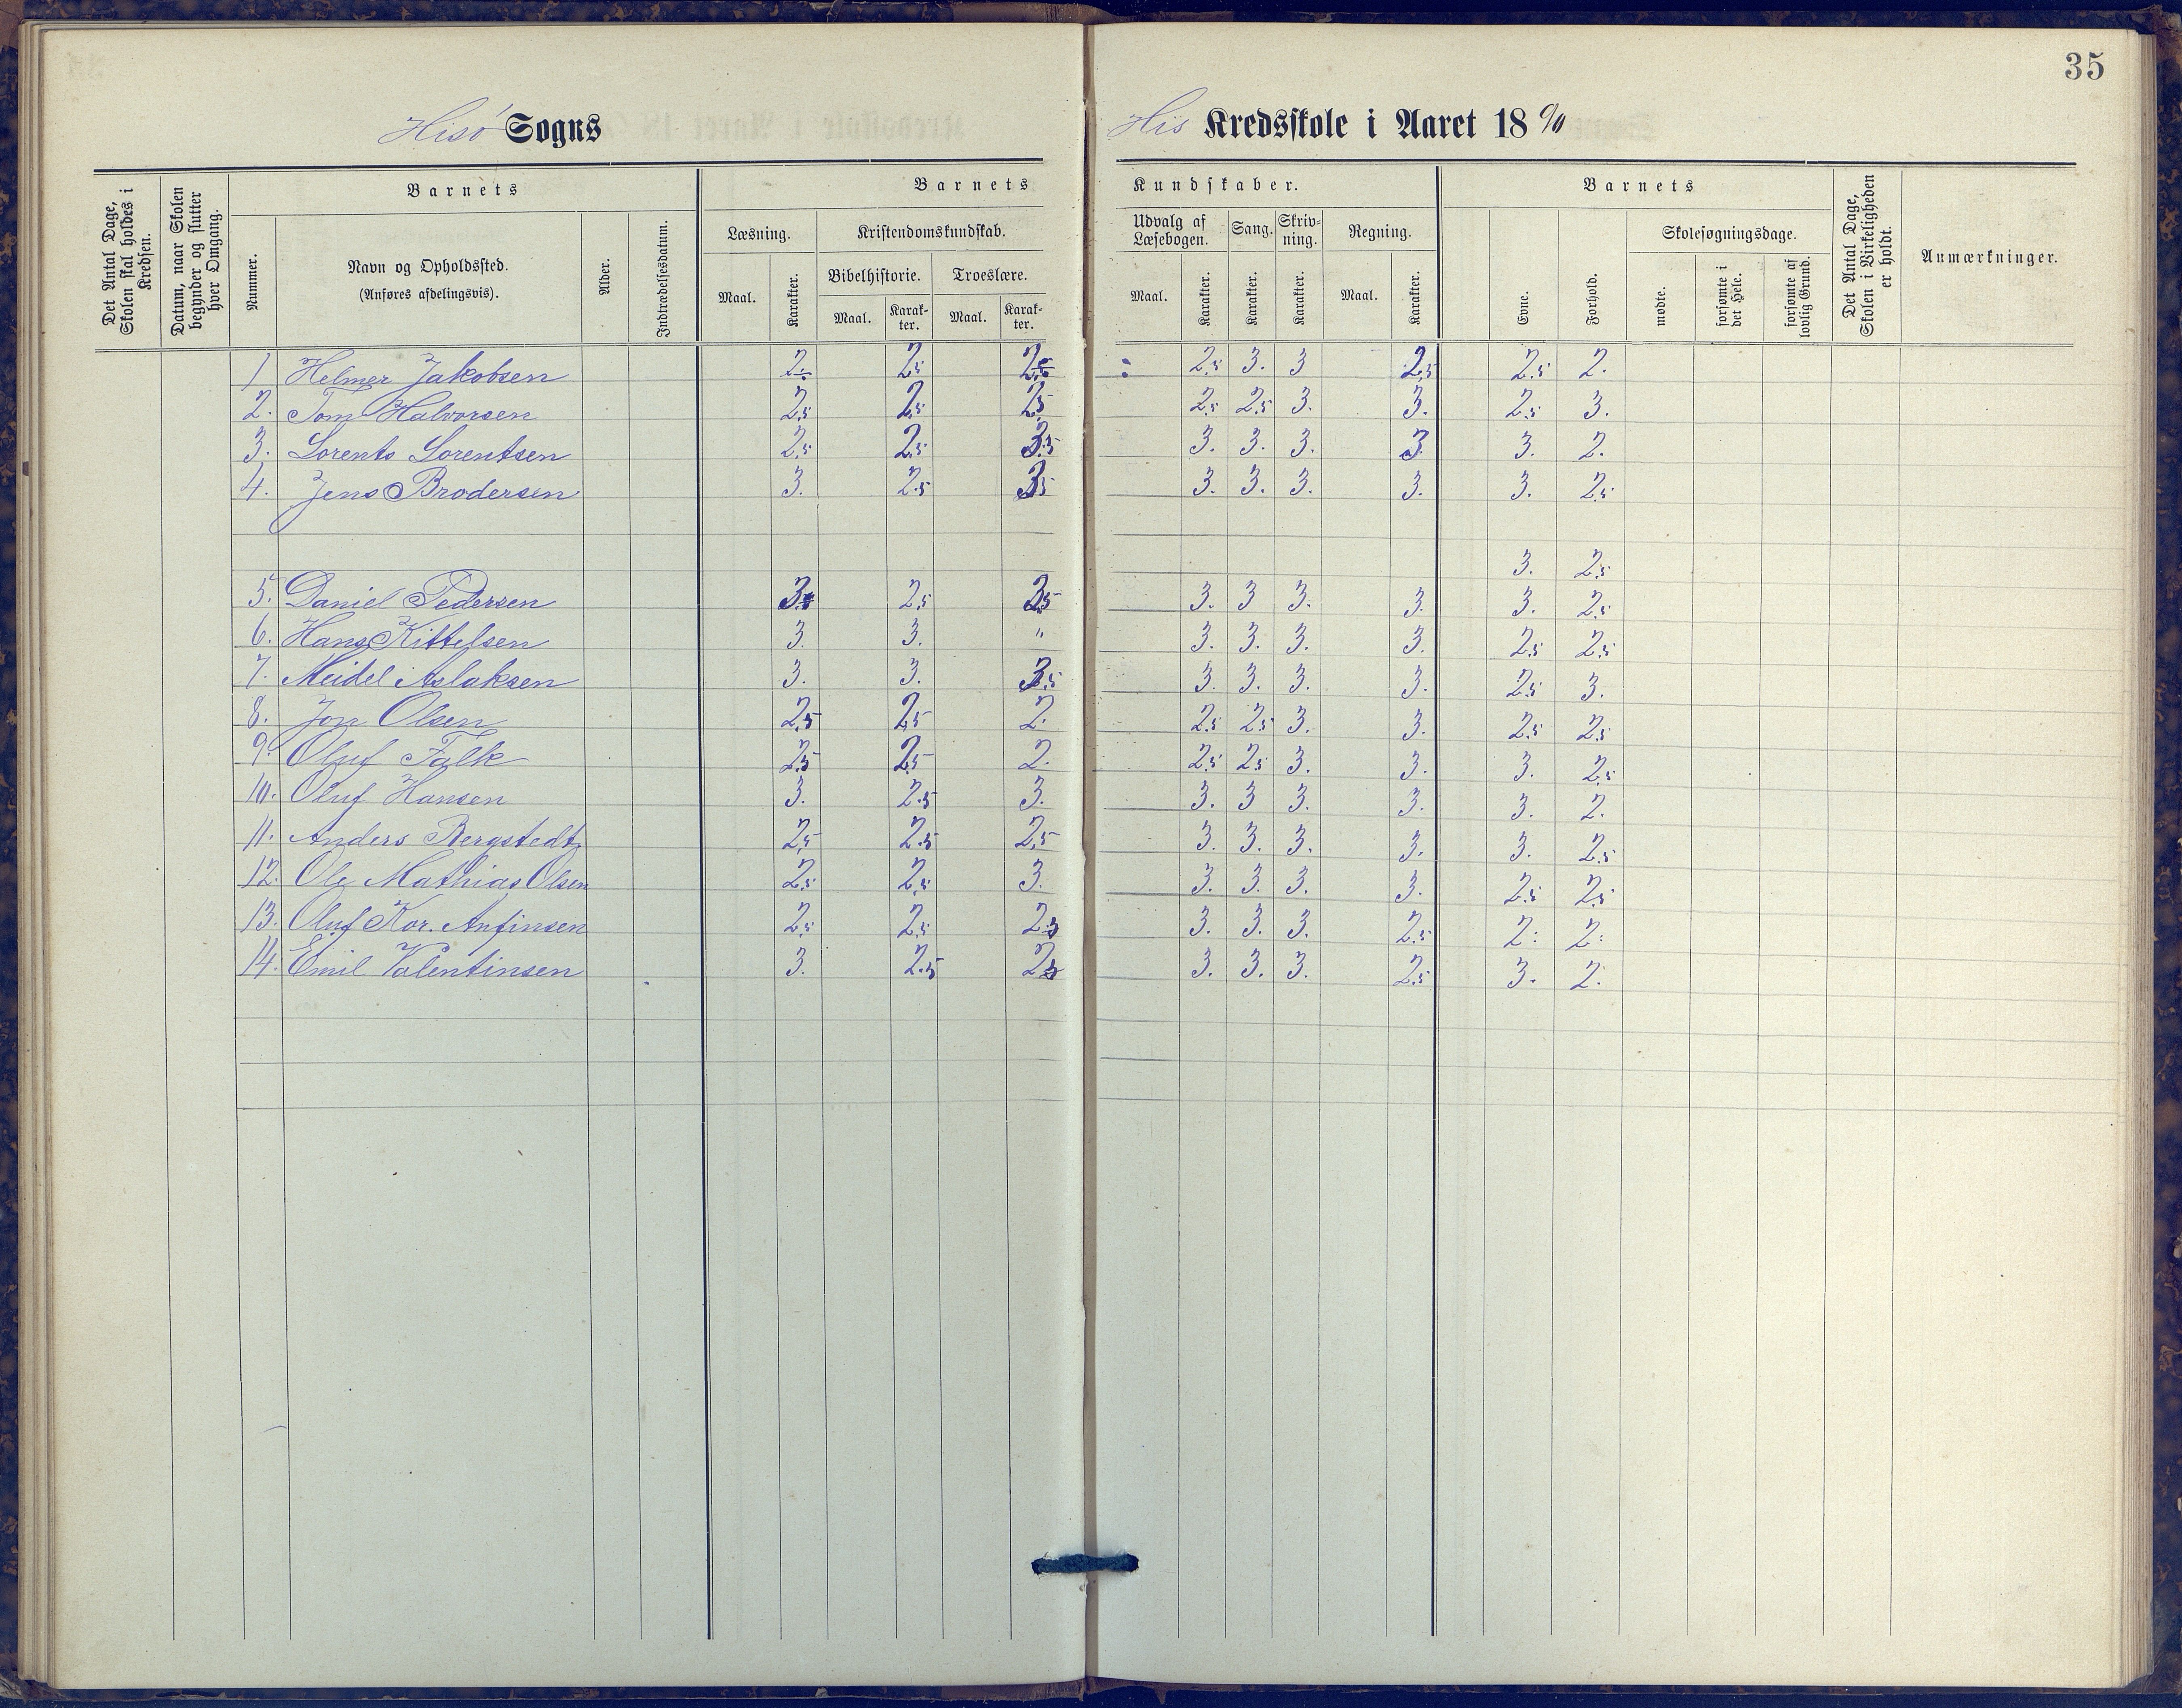 35
Hisø Sogns His Kredsskole i Aaret 18 %
Det Antal Dage, Skolen skal holdes i Kredsen.
Datum, naar Skolen begynder og slutter hver Omgang.
Barnets
Nummer.
Navn og Opholdssted.
(Anføres afdelingsvis).
Alder.
Indtrædelsesdatum.
Barnets Kundskaber.
Læsning.
Maal. Karakter.
Kristendomskundskab.
Bibelhistorie. Troeslære.
Maal. Karak-ter. Maal. Karak-ter.
Udvalg af Læsebogen. Sang. Skriv-ning. Regning.
Maal. Karakter. Karakter. Karakter. Maal. Karakter.
Barnets
Evne. Forhold.
Skolesøgningsdage.
mødte. forsømte i det Hele. forsømte af lovlig Grund.
Det Antal Dage, Skolen i Virkeligheden er holdt.
Anmærkninger.
1 Helmer Jakobsen 2 2,5 2,5 2,5 3. 3 2,5 2,5 2.
2. Tom Halvorsen 2,5 2,5 2,5 2,5 2,5 3. 3. 2,5 3.
3. Lorents Lorentsen 2,5 2,5 3,5 3. 3. 3. 3 3. 2.
4. Jens Brodersen 3. 2,5 3,5 3. 3. 3. 3. 3. 2,5
3. 2,5
5. Daniel Pedersen 3. 2,5 3,5 3. 3 3. 3. 3. 2,5
6. Hans Kittelsen 3. 3. " 3. 3. 3. 3. 2,5 2,5
7. Meidel Aslaksen 3. 3. 3,5 3. 3. 3. 3. 2,5 3.
8. Jon Olsen 2,5 2,5 2. 2,5 2,5 3. 3. 2,5 2,5
9. Oluf Falk 2,5 2,5 2. 2,5 2,5 3. 3. 3. 2,5
10. Oluf Hansen 3. 2,5 3. 3. 3 3. 3. 3. 2.
11. Anders Bergstedt 2,5 2,5 2,5 3. 3. 3. 3. 3. 2,5
12. Ole Mathias Olsen 2,5 2,5 3. 3. 3. 3. 3. 2,5 2,5
13. Oluf Kor. Anfinsen 2,5 2,5 2,5 3. 3. 3. 2,5 2. 2.
14. Emil Valentinsen 3. 2,5 2,5 3. 3. 3. 2,5 3. 2.